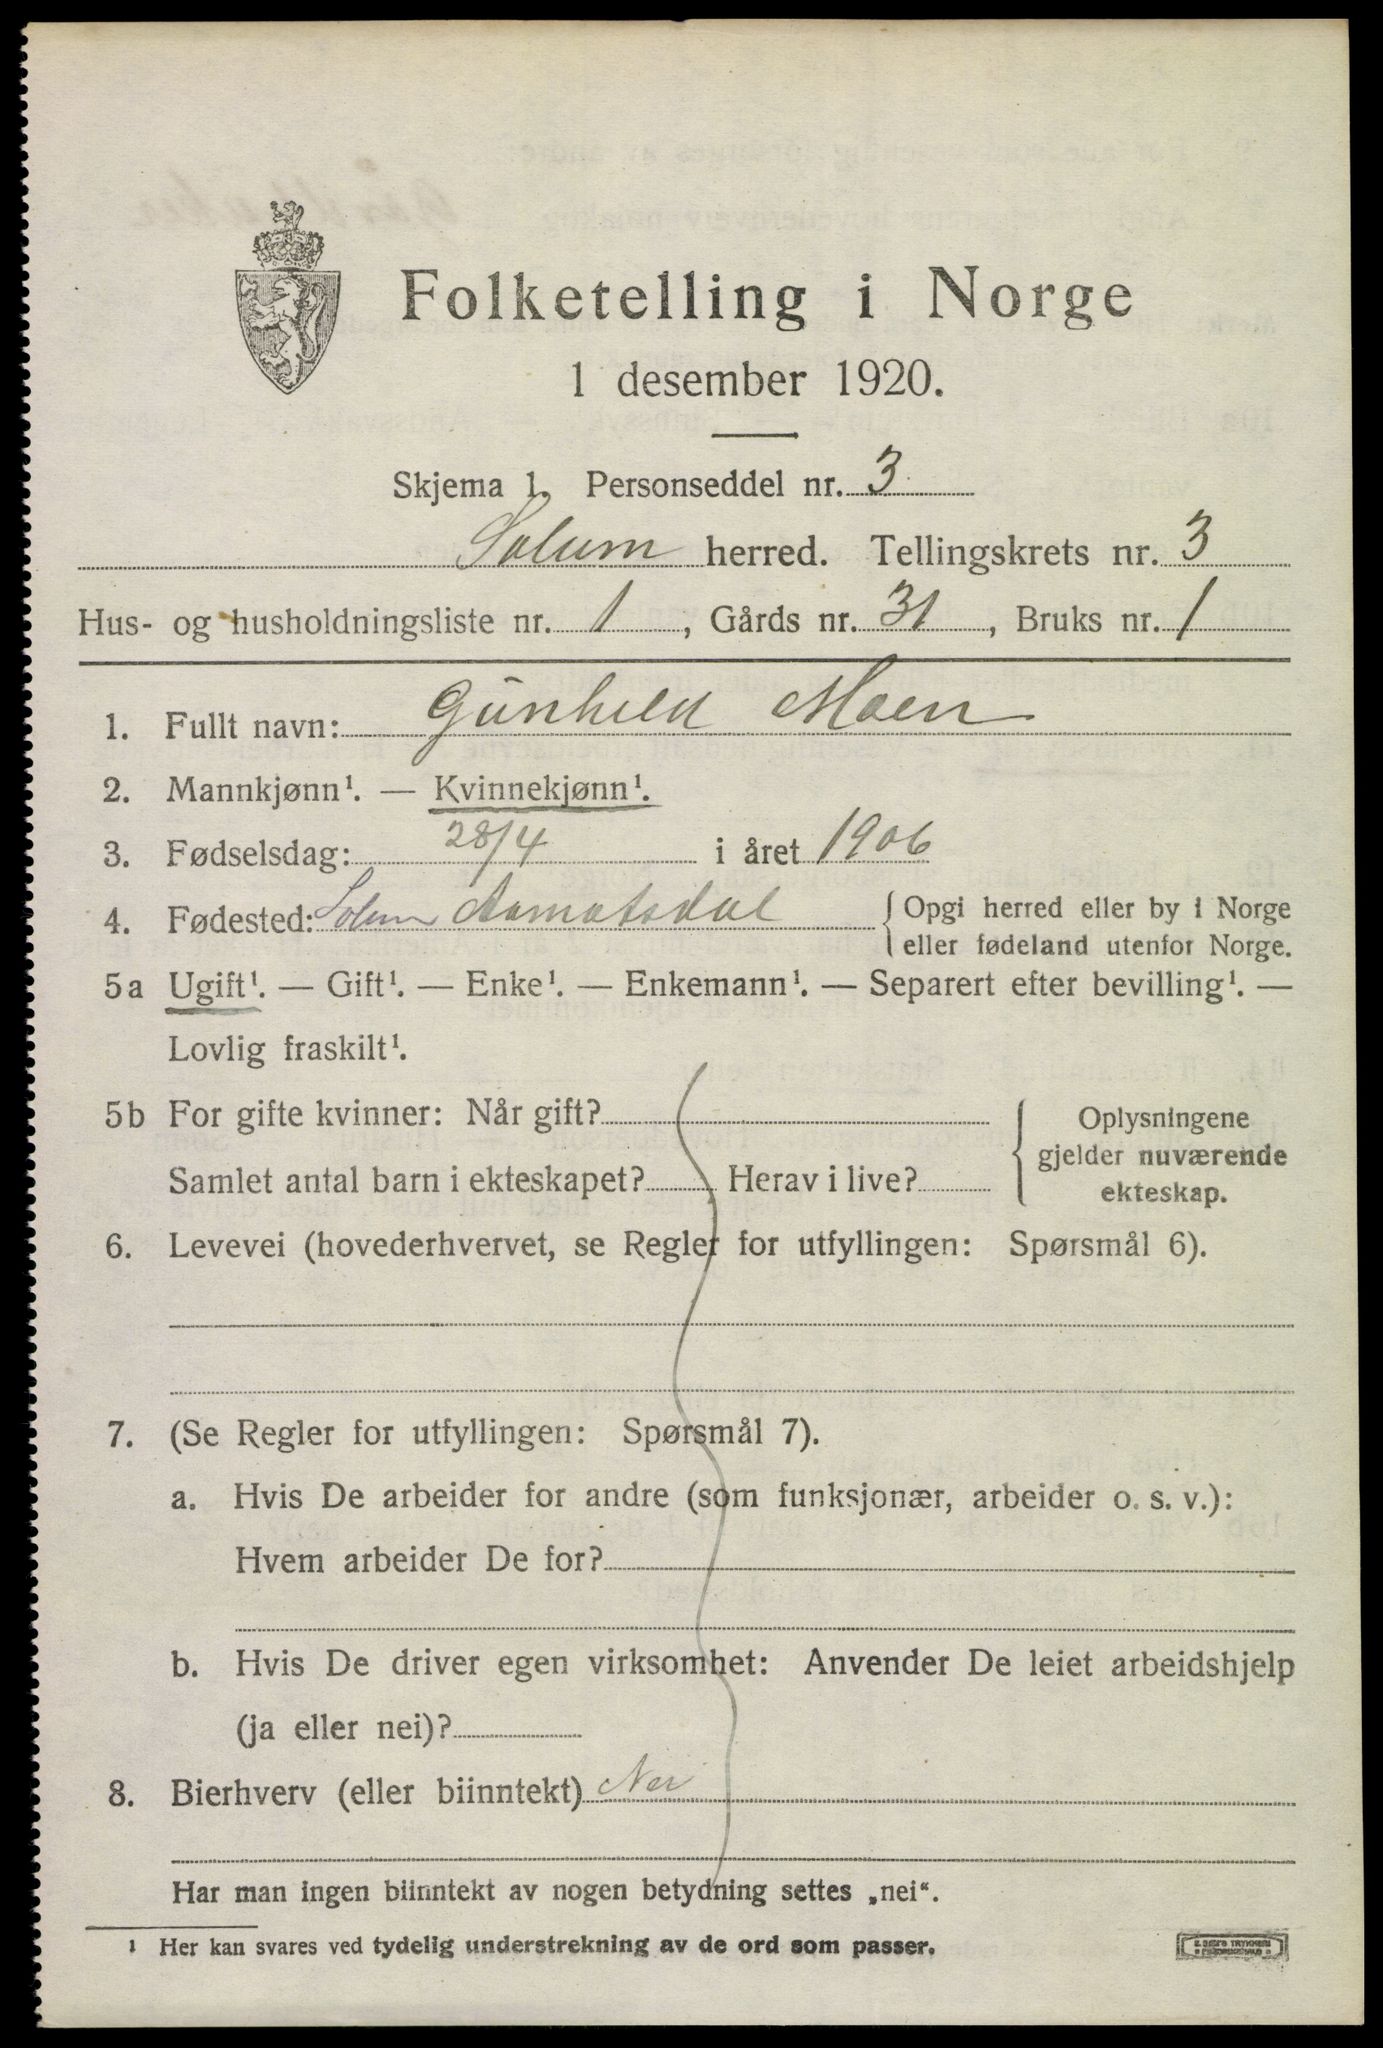 Folketelling i Norge
1 desember 1920.
Skjema 1. Personseddel nr. 3
Solum herred. Tellingskrets nr. 3
Hus- og husholdningsliste nr. 1, Gårds nr. 31, Bruks nr. 1
1. Fullt navn: Gunhild Moen
2. Mannkjønn¹. — Kvinnekjønn¹.
3. Fødselsdag: 28/4 i året 1906
4. Fødested: Solum Aamotsdal { Opgi herred eller by i Norge
eller fødeland utenfor Norge.
5a Ugift¹. — Gift¹. — Enke¹. — Enkemann¹. — Separert efter bevilling¹. —
Lovlig fraskilt¹.
5b For gifte kvinner: Når gift?
Samlet antal barn i ekteskapet? Herav i live?
{ Oplysningene
gjelder nuværende
ekteskap.
6. Levevei (hovederhvervet, se Regler for utfyllingen: Spørsmål 6).
7. (Se Regler for utfyllingen: Spørsmål 7).
a. Hvis De arbeider for andre (som funksjonær, arbeider o. s. v.):
Hvem arbeider De for?
b. Hvis De driver egen virksomhet: Anvender De leiet arbeidshjelp
(ja eller nei)?
8. Bierhverv (eller biinntekt) Nei
Har man ingen biinntekt av nogen betydning settes „nei“.
¹ Her kan svares ved tydelig understrekning av de ord som passer.